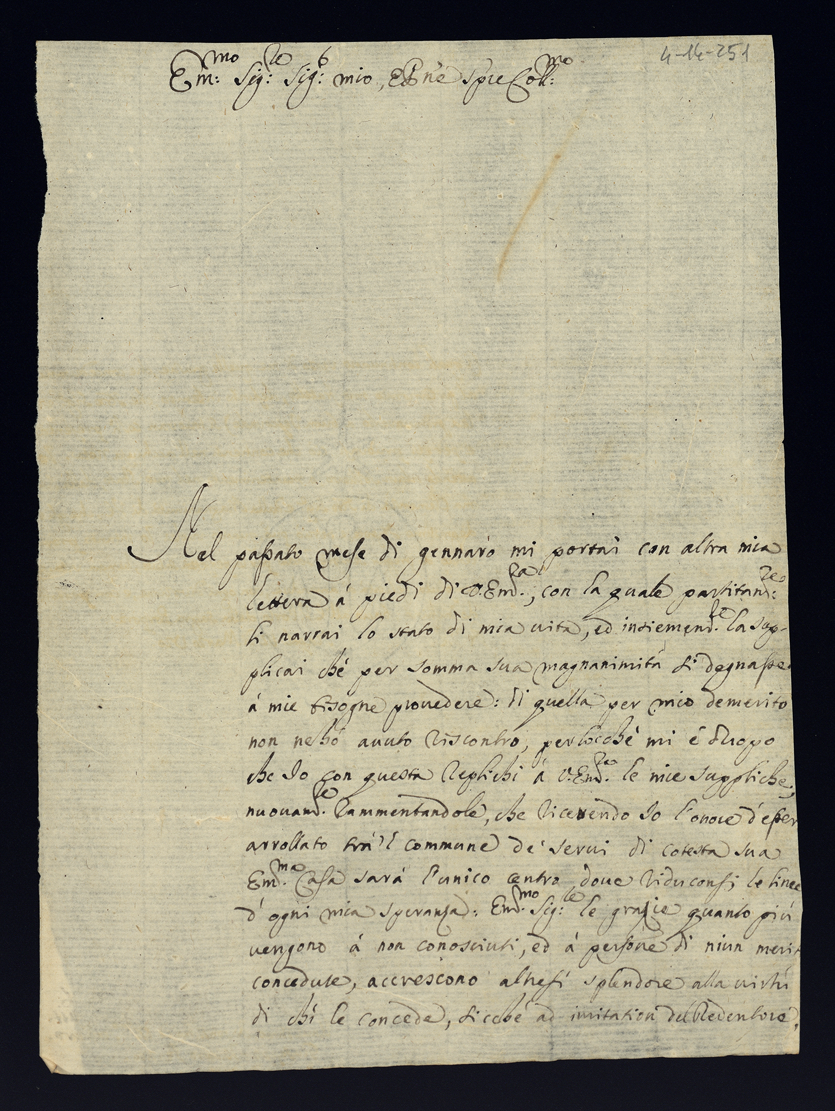 4-14-251
Em:mo Sig:re Sig:r mio, e Pne sple Coll:mo
Nel passato mese di gennaro mi portai con altra mia
lettera á piedi di V. Em.za, con la quale partitam:te
li narrai lo stato di mia vita, ed insiemem.te la sup-
plicai ché per somma sua magnanimitá si degnasse
á mie bisogne provedere: di quella per mio demerito
non ne hó avuto riscontro, perlocché mi é d'uopo
che Io con questa replichi á V. Em.za le mie suppliche,
nuovam.te rammentandole, che ricevendo Io l'onore d'esser
arrollato trá'l commune de' servi di cotesta sua
Em.ma Casa sará l'unico centro, dove riduconsi le linee
d'ogni mia speranza: Em.mo Sig:re le grazie quanto piú
vengono á non conosciuti, ed á persone di niun meri
concedute, accrescono altresí splendore alla virtú
di chi le concede, sicché ad imitation del Redentore,